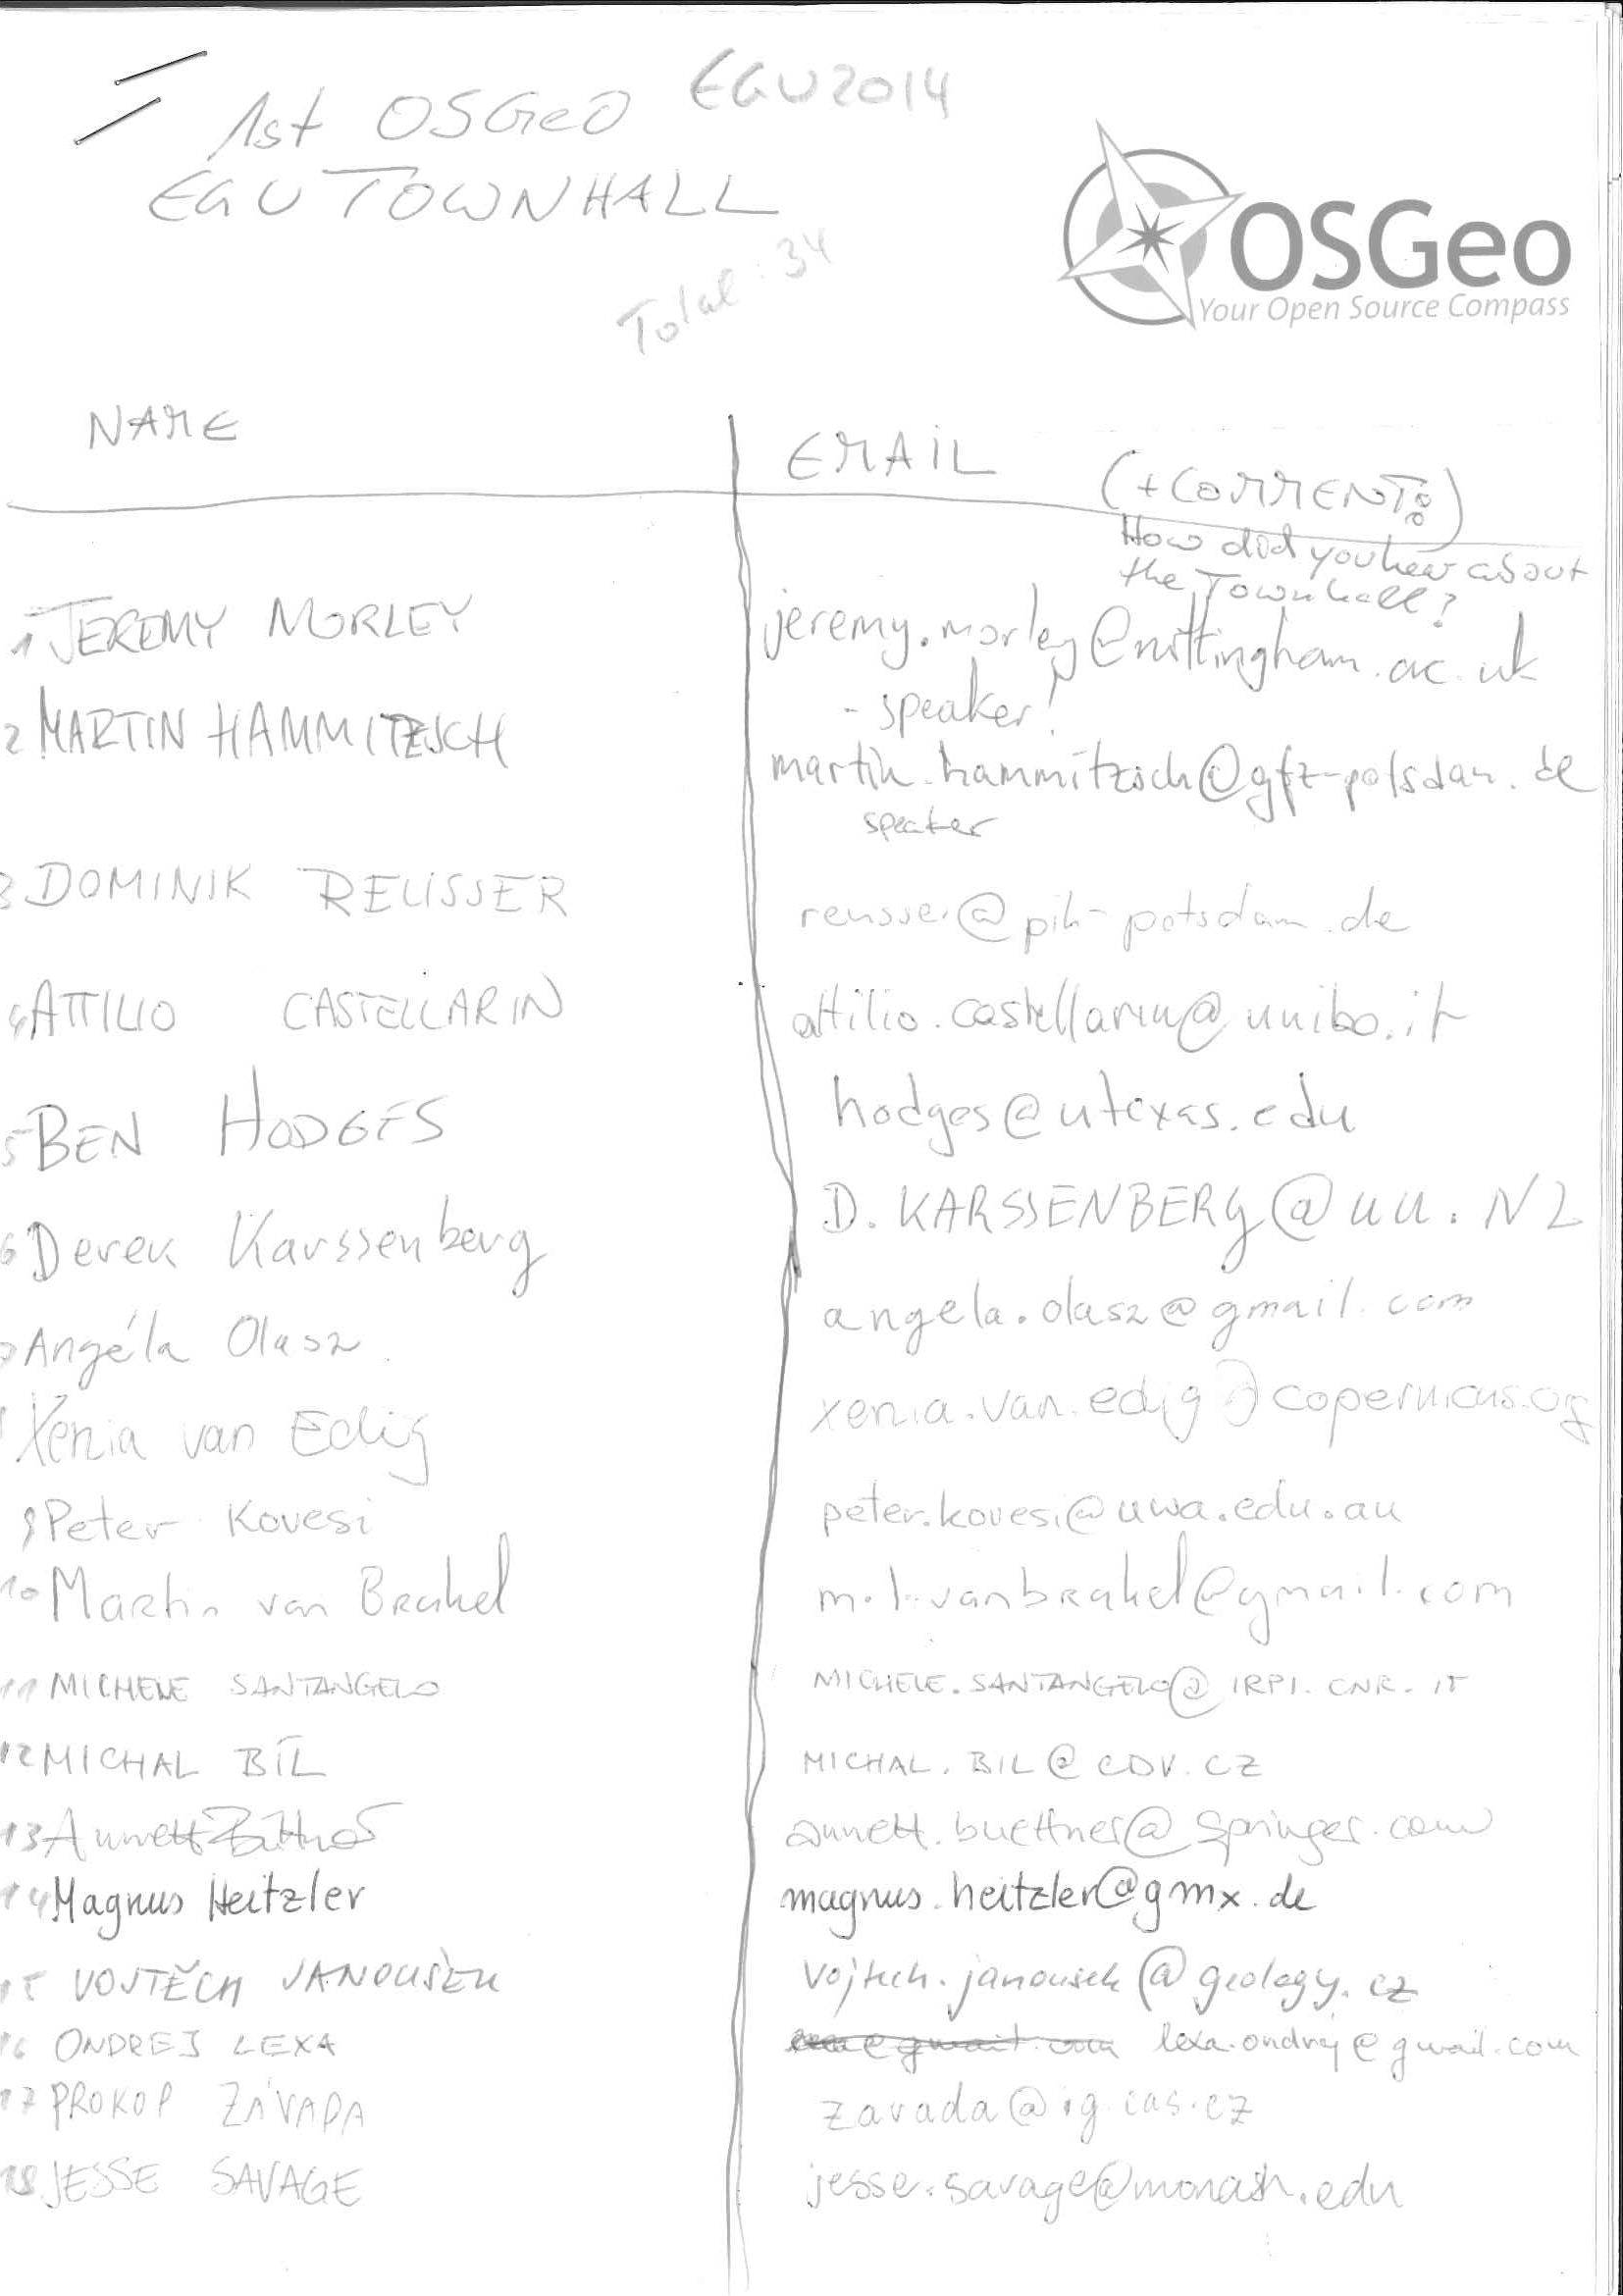 1st OSGeO EGU2014
EGU TOWNHALL
Total: 34
OSGeo
Your Open Source Compass
NAME EMAIL (+COMMENT:)
How did you hear about
the Townhall?
1 JEREMY MORLEY jeremy.morley@nottingham.ac.uk
- speaker!
2 MARTIN HAMMITZSCH martin.hammitzsch@gfz-potsdam.de
speaker
3 DOMINIK REUSSER reusser@pik-potsdam.de
4 ATTILIO CASTELLARIN attilio.castellarin@unibo.it
5 BEN HODGES hodges@utexas.edu
6 Derek Karssenberg D.KARSSENBERG@UU.NL
7 Angéla Olasz angela.olasz@gmail.com
Xenia van Edig xenia.van.edig@copernicus.org
9 Peter Kovesi peter.kovesi@uwa.edu.au
10 Martin van Brakel m.l.vanbrakel@gmail.com
11 MICHELE SANTANGELO MICHELE.SANTANGELO@IRPI.CNR.IT
12 MICHAL BÍL MICHAL.BIL@CDV.CZ
13 Annett Büttner annett.buettner@springer.com
14 Magnus Heitzler magnus.heitzler@gmx.de
15 VOJTĚCH JANOUŠEK vojtech.janousek@geology.cz
16 ONDREJ LEXA lexa.ondrej@gmail.com
17 PROKOP ZÁVADA zavada@ig.cas.cz
18 JESSE SAVAGE jesse.savage@monash.edu